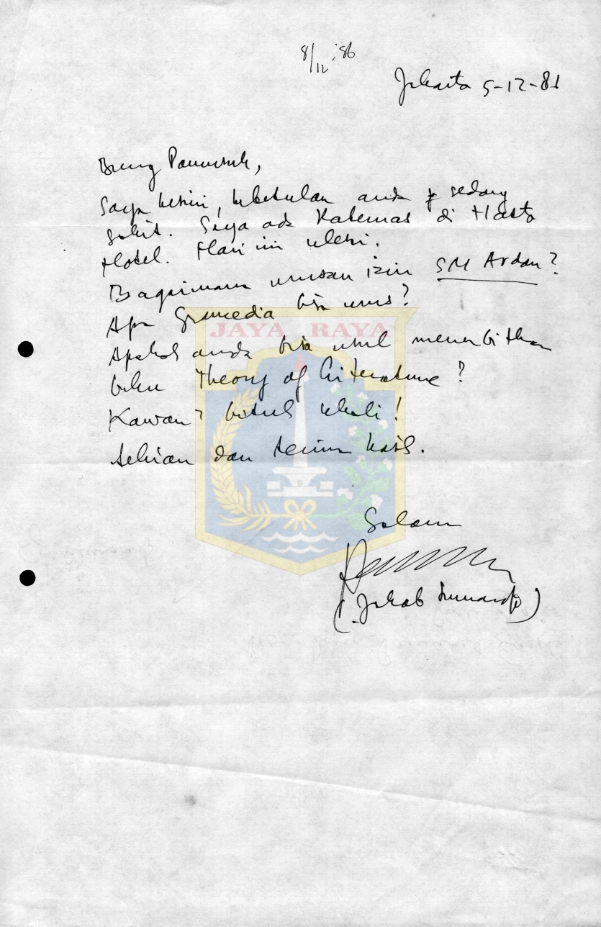 8/12 '86
Jakarta 5-12-81
Bung Pamusuk,
Saya kesini, kebetulan anda sedang
sakit. Saya ada Katemas di Hasta
Hotel. Hari ini
Bagaimana urusan izin SM Ardan?
Apa Gramedia bisa urus?
Apakah anda bisa menerbitkan
buku Theory of Literature?
Kawan2 butuh sekali!
Sekian dan terima kasih.
Salam
(Jakob Sumardjo)
JAYA RAYA